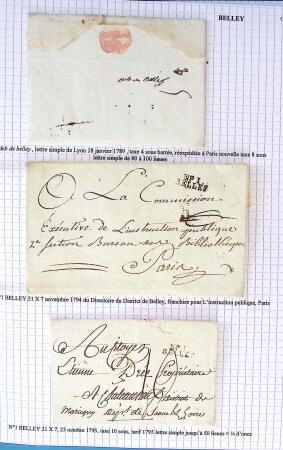 BELLEY
deb de belley
deb de belley , lettre simple de Lyon 18 janvier 1789 , taxe 4 sous barrée, réexpédiée 4 Paris nouvelle taxe 8 sous
lettre simple de 80 à 100 lieues
Nº 1
BELLEY
A La Commission
Exécutive de L'instruction publique
2e Section Bureau des Bibliothèques
Paris
N°1 BELLEY 21 X 7 novembre 1794 du Directoire du District de Belley, franchise pour L'instruction publique, Paris
BELLEY
Au Citoyen
Propriétaire
A
Marigny Dept. de Saone et Loire
N°1 BELLEY 21 X 7, 23 octobre 1795, taxe 10 sous, tarif 1795 lettre simple jusqu'à 50 lieues > ¼ d'once